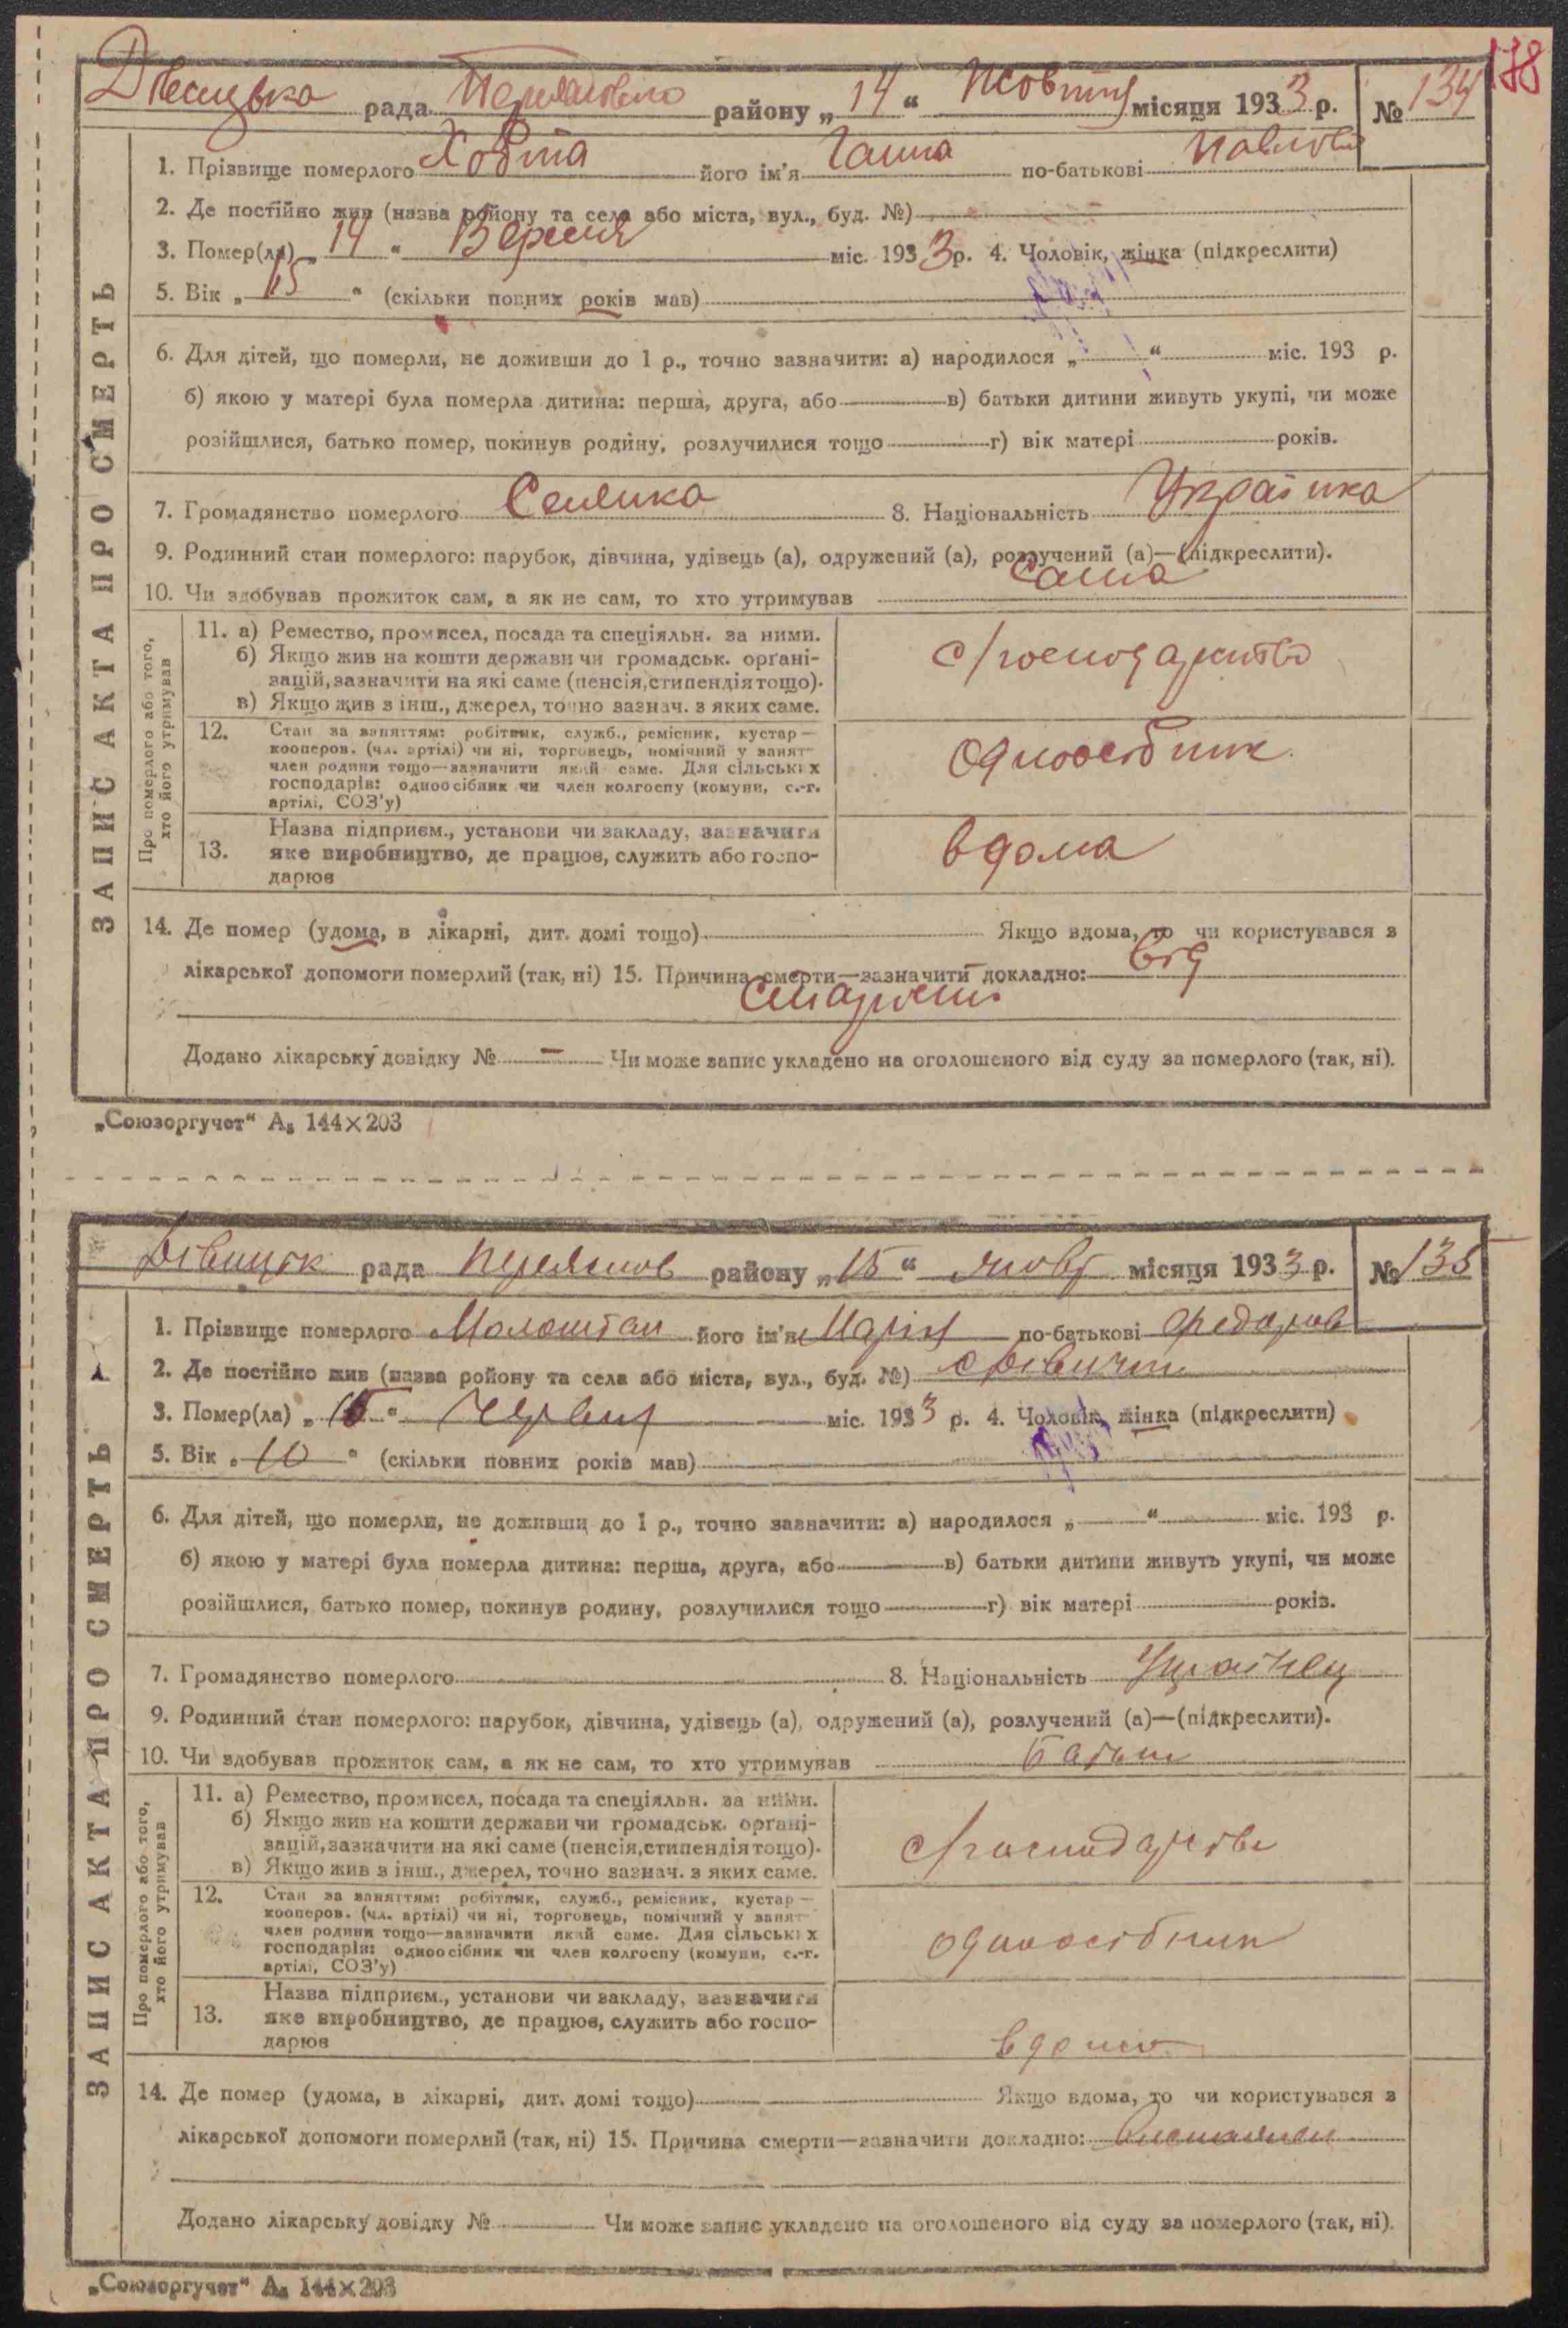 178
Дівицька рада Переяславського району „14“ Жовтня місяця 1933 р. № 134
ЗАПИС АКТА ПРО СМЕРТЬ
1. Прізвище померлого Ховта його ім'я Ганна по-батькові Павлова
2. Де постійно жив (назва ройону та села або міста, вул., буд. №)
3. Помер(ла) „14“ Вересня міс. 1933 р. 4. Чоловік, жінка (підкреслити)
5. Вік „ “ (скільки повних років мав)
6. Для дітей, що померли, не доживши до 1 р., точно зазначити: а) народилося „ “ міс. 193 р.
б) якою у матері була померла дитина: перша, друга, або в) батьки дитини живуть укупі, чи може
розійшлися, батько помер, покинув родину, розлучилися тощо г) вік матері років.
7. Громадянство померлого Селянка 8. Національність Українка
9. Родинний стан померлого: парубок, дівчина, удівець (а), одружений (а), розлучений (а)—(підкреслити).
10. Чи здобував прожиток сам, а як не сам, то хто утримував Сама
Про померлого або того, хто його утримував
11. а) Ремество, промисел, посада та спеціяльн. за ними.
б) Якщо жив на кошти держави чи громадськ. орґані-
зацій, зазначити на які саме (пенсія, стипендія тощо).
в) Якщо жив з інш., джерел, точно зазнач. з яких саме.
с/господарство
12. Стан за заняттям: робітник, служб., ремісник, кустар—
кооперов. (чл. артілі) чи ні, торговець, помічний у занят-
член родини тощо—зазначити який саме. Для сільських
господарів: одноосібник чи член колгоспу (комуни, с.-г.
артілі, СОЗ'у)
одноосібник
13. Назва підприєм., установи чи закладу, зазначити
яке виробництво, де працює, служить або госпо-
дарює
вдома
14. Де помер (удома, в лікарні, дит. домі тощо) Якщо вдома, то чи користувався з
лікарської допомоги померлий (так, ні) 15. Причина смерти—зазначити докладно: від
старости
Додано лікарську довідку № — Чи може запис укладено на оголошеного від суду за померлого (так, ні).
„Союзоргучет“ А₅ 144×203
Дівицьк рада Переяслов району „15“ жовт місяця 1933 р. № 135
ЗАПИС АКТА ПРО СМЕРТЬ
1. Прізвище померлого Молоштан його ім'я Марія по-батькові Федоров
2. Де постійно жив (назва ройону та села або міста, вул., буд. №) с Дівички
3. Помер(ла) „15“ Червня міс. 1933 р. 4. Чоловік, жінка (підкреслити)
5. Вік „10“ (скільки повних років мав)
6. Для дітей, що померли, не доживши до 1 р., точно зазначити: а) народилося „ “ міс. 193 р.
б) якою у матері була померла дитина: перша, друга, або в) батьки дитини живуть укупі, чи може
розійшлися, батько помер, покинув родину, розлучилися тощо г) вік матері років.
7. Громадянство померлого 8. Національність Українец
9. Родинний стан померлого: парубок, дівчина, удівець (а), одружений (а), розлучений (а)—(підкреслити).
10. Чи здобував прожиток сам, а як не сам, то хто утримував Батьки
Про померлого або того, хто його утримував
11. а) Ремество, промисел, посада та спеціяльн. за ними.
б) Якщо жив на кошти держави чи громадськ. орґані-
зацій, зазначити на які саме (пенсія, стипендія тощо).
в) Якщо жив з інш., джерел, точно зазнач. з яких саме.
с/господарство
12. Стан за заняттям: робітник, служб., ремісник, кустар—
кооперов. (чл. артілі) чи ні, торговець, помічний у занят-
член родини тощо—зазначити який саме. Для сільських
господарів: одноосібник чи член колгоспу (комуни, с.-г.
артілі, СОЗ'у)
одноосібник
13. Назва підприєм., установи чи закладу, зазначити
яке виробництво, де працює, служить або госпо-
дарює
вдома
14. Де помер (удома, в лікарні, дит. домі тощо) Якщо вдома, то чи користувався з
лікарської допомоги померлий (так, ні) 15. Причина смерти—зазначити докладно:
Додано лікарську довідку № Чи може запис укладено на оголошеного від суду за померлого (так, ні).
„Союзоргучет“ А₅ 144×203